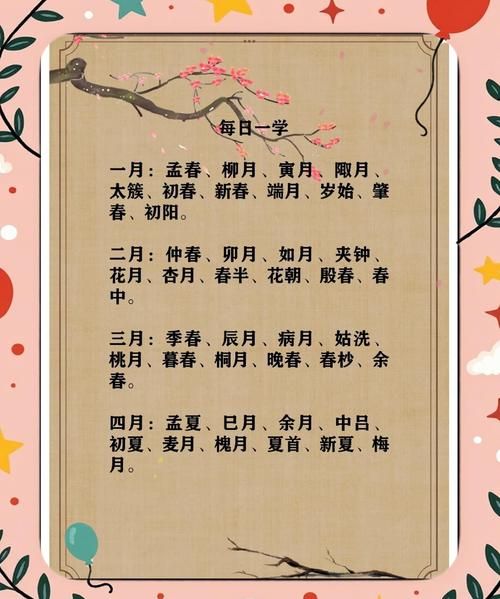 每日一学
一月：孟春、柳月、寅月、陬月、
太簇、初春、新春、端月、岁始、肇
春、初阳。
二月：仲春、卯月、如月、夹钟、
花月、杏月、春半、花朝、殷春、春
中。
三月：季春、辰月、病月、姑洗、
桃月、暮春、桐月、晚春、春杪、余
春。
四月：孟夏、巳月、余月、中吕、
初夏、麦月、槐月、夏首、新夏、梅
月。